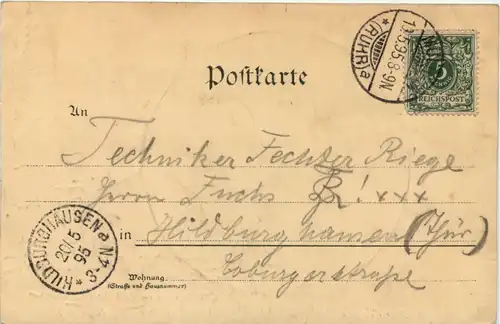 Postkarte
(RUHR) a
8-9N
REICHSPOST
An
Techniker Fechter Riege
Herrn Fuchs ! xxx
HILDBURGHAUSEN
20/5
95
3-4 N
in Hildburghausen (Thür)
Coburgerstraße
Wohnung.
(Straße und Hausnummer)